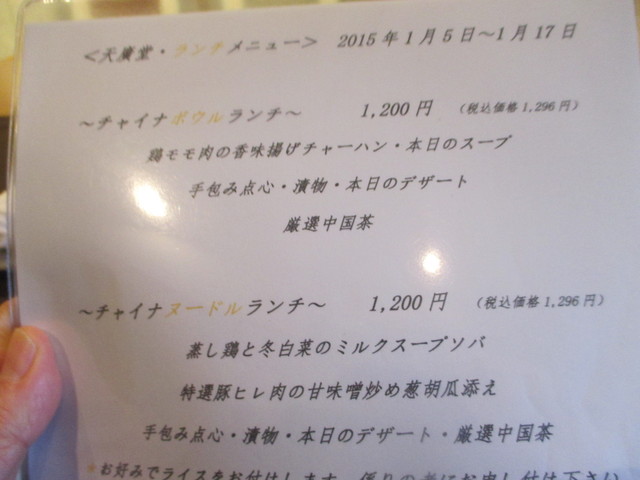 ＜天廣堂・ランチメニュー＞ 2015年1月5日～1月17日
～チャイナボウルランチ～ 1,200円 （税込価格1,296円）
鶏モモ肉の香味揚げチャーハン・本日のスープ
手包み点心・漬物・本日のデザート
厳選中国茶
～チャイナヌードルランチ～ 1,200円 （税込価格1,296円）
蒸し鶏と冬白菜のミルクスープソバ
特選豚ヒレ肉の甘味噌炒め葱胡瓜添え
手包み点心・漬物・本日のデザート・厳選中国茶
★お好みでライスをお付けします。係りの者にお申し付け下さい